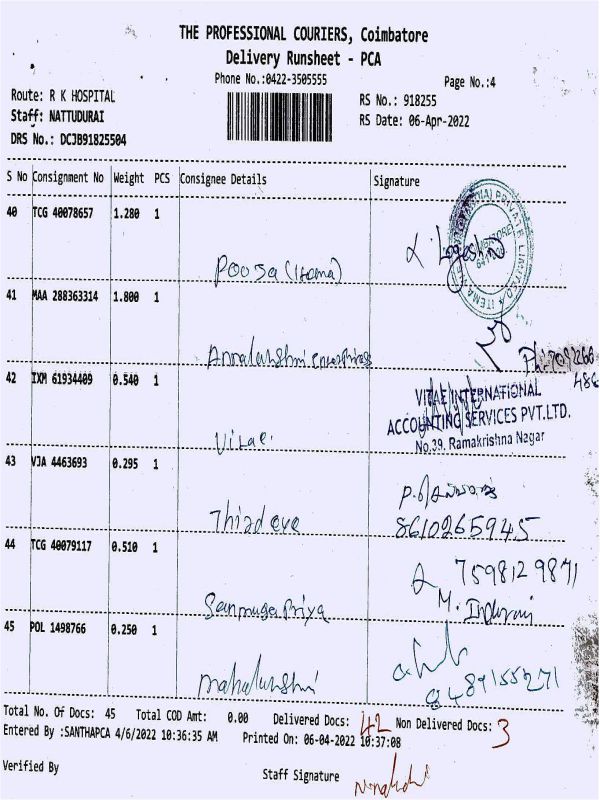 THE PROFESSIONAL COURIERS, Coimbatore
Delivery Runsheet - PCA
Phone No.:0422-3505555
Page No.:4
Route: R K HOSPITAL
RS No.: 918255
Staff: NATTUDURAI
RS Date: 06-Apr-2022
DRS No.: DCJB91825504
S No Consignment No Weight PCS Consignee Details Signature
40 TCG 40078657 1.280 1
Poosa (Itema)
41 MAA 288363314 1.800 1
42 IXM 61934409 0.540 1
VITAE INTERNATIONAL
ACCOUNTING SERVICES PVT.LTD.
No.39, Ramakrishna Nagar
Vitae.
43 VJA 4463693 0.295 1
Third eye
8610265945
44 TCG 40079117 0.510 1
7598129871
Sanmuga Priya
45 POL 1498766 0.250 1
Mahalakshmi
8489155271
Total No. Of Docs: 45 Total COD Amt: 0.00 Delivered Docs: 42 Non Delivered Docs: 3
Entered By :SANTHAPCA 4/6/2022 10:36:35 AM Printed On: 06-04-2022 10:37:08
Verified By
Staff Signature